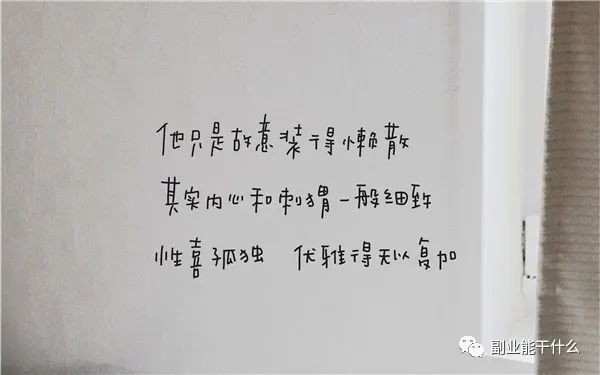 他只是故意装得懒散
其实内心和刺猬一般细致
性喜孤独 优雅得无以复加
副业能干什么